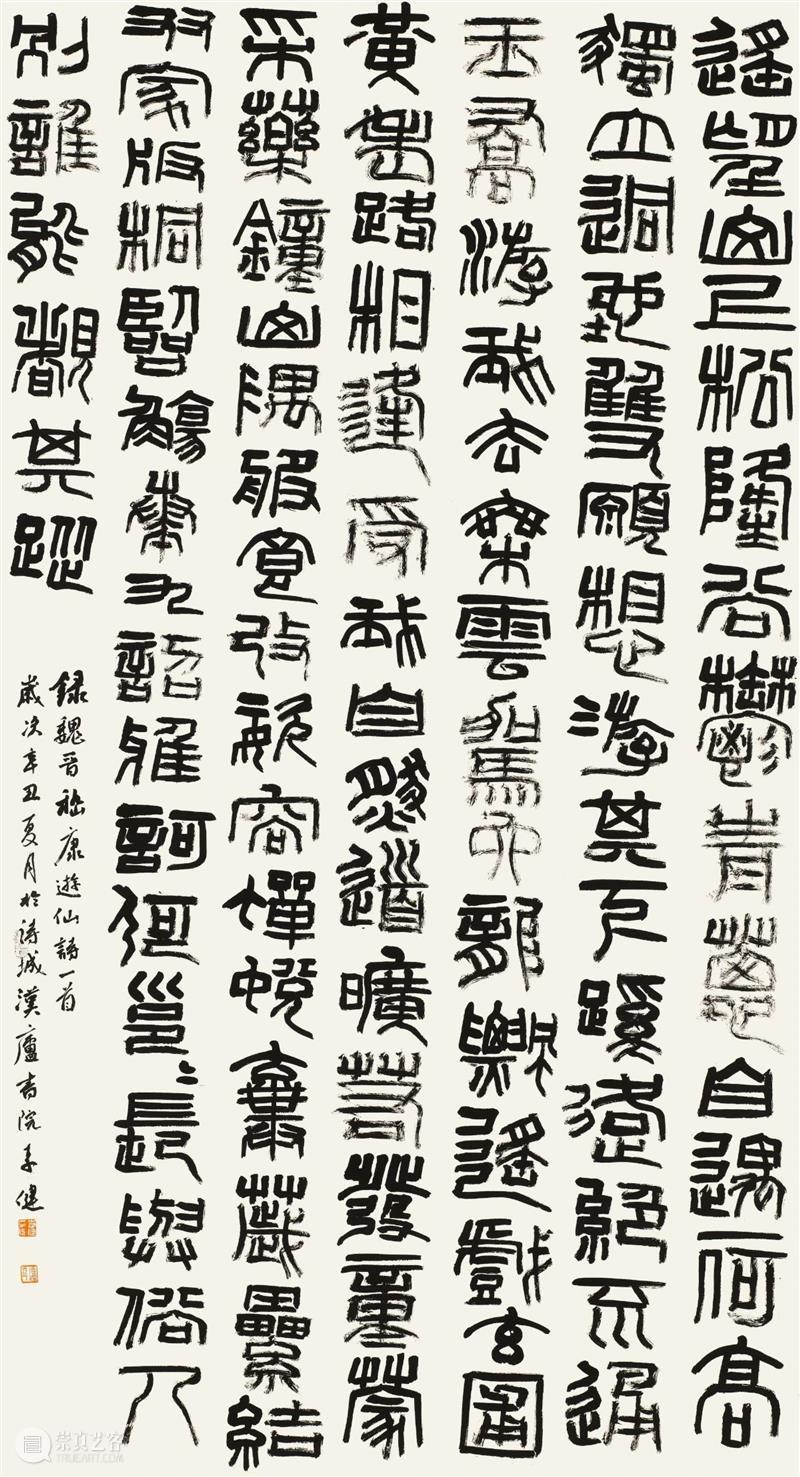 遙望山上松隆谷鬱青蔥自遇一何高
獨立迥無雙願想游其下蹊路絕不通
王喬游我去乘雲駕六龍飄颻戲玄圃
黃老路相逢受我自然道曠若發童蒙
采藥鐘山隅服食改姿容蟬蛻棄薉纍結
友家版桐臨觴奏九韶雅訶何邕〻長與俗人
別誰能覩其蹤
錄魏晉嵇康遊仙詩一首
歲次辛丑夏月於詩城漢廬書院李健
崇真艺客